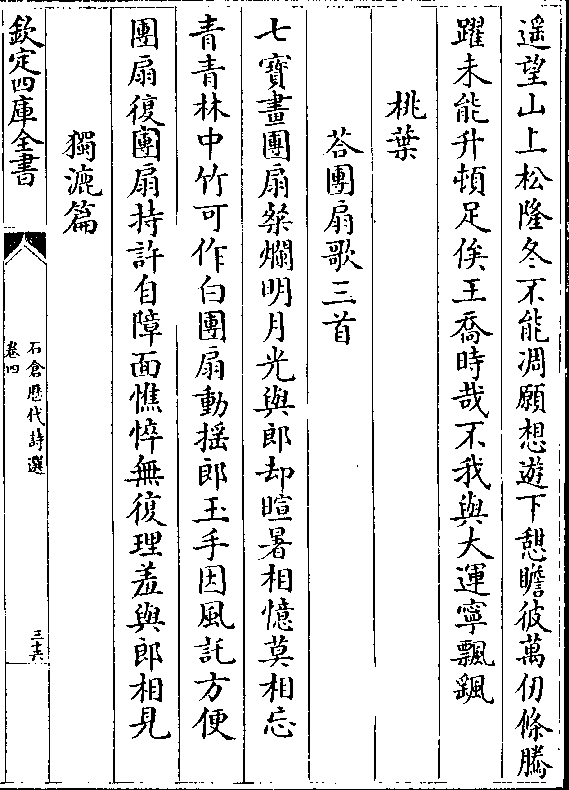 遥望山上松隆冬不能凋願想遊下憩瞻彼萬仞條騰
躍未能升頓足俟王喬時哉不我與大運寧飄颻
桃葉
荅團扇歌三首
七寶畫團扇粲爛明月光與郎却暄暑相憶莫相忘
青青林中竹可作白團扇動揺郎玉手因風託方便
團扇復團扇持許自障面憔悴無復理羞與郎相見
獨漉篇
欽定四庫全書
石倉歴代詩選
卷四
三六